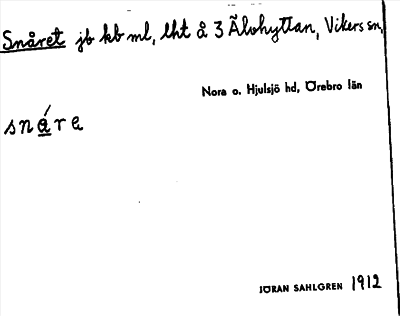 Snåret jb kb ml, lht å 3 Älvhyttan, Vikers sn,
Nora o. Hjulsjö hd, Örebro län
sná̱re
JÖRAN SAHLGREN 1912